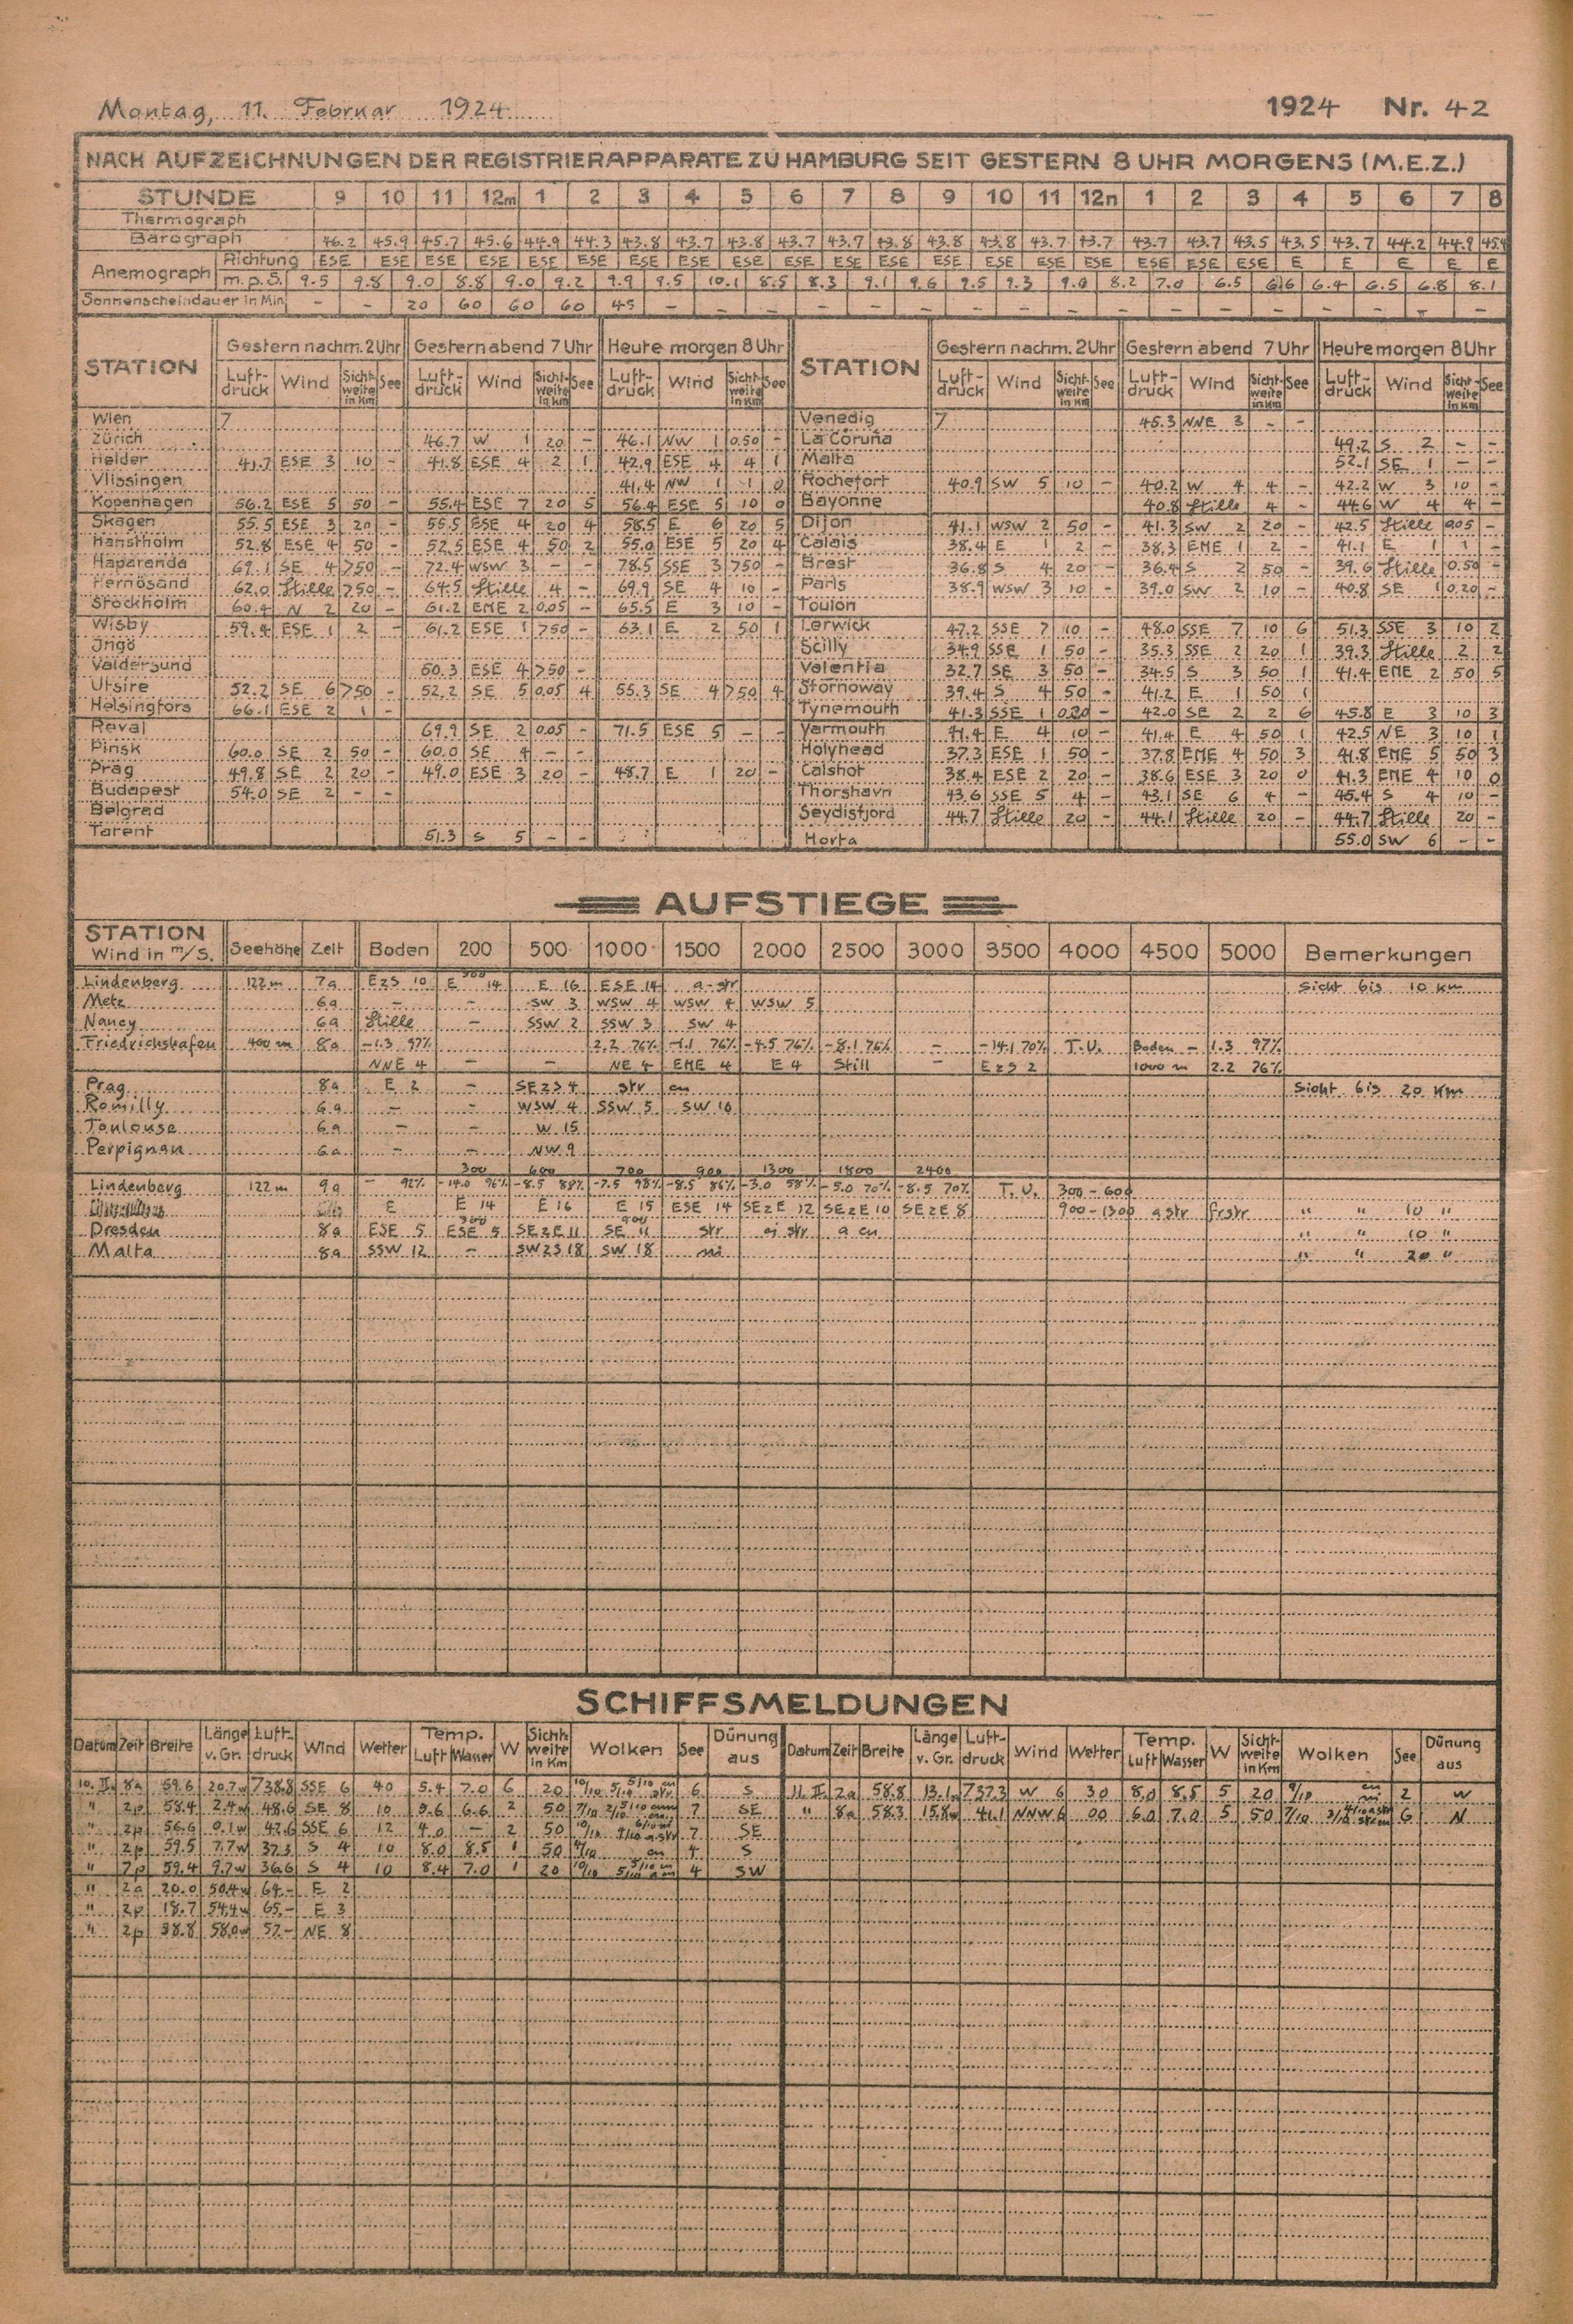 Montag, 11. Februar 1924 1924 Nr. 42
NACH AUFZEICHNUNGEN DER REGISTRIERAPPARATE ZU HAMBURG SEIT GESTERN 8 UHR MORGENS (M.E.Z.)
STUNDE 9 10 11 12m 1 2 3 4 5 6 7 8 9 10 11 12n 1 2 3 4 5 6 7 8
Thermograph
Barograph 46.2 45.9 45.7 45.6 44.9 44.3 43.8 43.7 43.8 43.7 43.7 43.8 43.8 43.8 43.7 43.7 43.7 43.7 43.5 43.5 43.7 44.2 44.9
Anemograph Richtung ESE ESE ESE ESE ESE ESE ESE ESE ESE ESE ESE ESE ESE ESE ESE ESE ESE ESE ESE E E E E E
m.p.S. 9.5 9.8 9.0 8.8 9.0 9.2 9.9 9.5 10.1 8.5 8.3 9.1 9.6 9.5 9.3 9.0 8.2 7.0 6.5 6.6 6.4 6.5 6.8 8.1
Sonnenscheindauer in Min. - - 20 60 60 60 45 - - - - - - - - - - - - - - - - -
STATION Gestern nachm. 2 Uhr Gestern abend 7 Uhr Heute morgen 8 Uhr STATION Gestern nachm. 2 Uhr Gestern abend 7 Uhr Heute morgen 8 Uhr
Luft-druck Wind Sicht-weite in Km See Luft-druck Wind Sicht-weite in Km See Luft-druck Wind Sicht-weite in Km See Luft-druck Wind Sicht-weite in Km See Luft-druck Wind Sicht-weite in Km See Luft-druck Wind Sicht-weite in Km See
Wien 7 Venedig 7 45.3 NNE 3 - -
Zürich 46.7 W 1 20 - 46.1 NW 1 0.50 - La Coruña 49.2 S 2 - -
Helder 41.7 ESE 3 10 - 41.8 ESE 4 2 1 42.9 ESE 4 4 1 Malta 52.1 SE 1 - -
Vlissingen 41.4 NW 1 1 0 Rochefort 40.9 SW 5 10 - 40.2 W 4 4 - 42.2 W 3 10 -
Kopenhagen 56.2 ESE 5 50 - 55.4 ESE 7 20 5 56.4 ESE 5 10 0 Bayonne 40.8 Stille 4 - 44.6 W 4 4 -
Skagen 55.5 ESE 3 20 - 55.5 ESE 4 20 4 58.5 E 6 20 5 Dijon 41.1 WSW 2 50 - 41.3 SW 2 20 - 42.5 Stille 0.05 -
Hanstholm 52.8 ESE 4 50 - 52.5 ESE 4 50 2 55.0 ESE 5 20 4 Calais 38.4 E 1 2 - 38.3 ENE 1 2 - 41.1 E 1 1 -
Haparanda 69.1 SE 4 >50 - 72.4 WSW 3 - - 78.5 SSE 3 >50 - Brest 36.8 S 4 20 - 36.4 S 2 50 - 39.6 Stille 0.50 -
Hernösand 62.0 Stille >50 - 64.5 Stille 4 - 69.9 SE 4 10 - Paris 38.9 WSW 3 10 - 39.0 SW 2 10 - 40.8 SE 1 0.20 -
Stockholm 60.4 N 2 20 - 61.2 ENE 2 0.05 - 65.5 E 3 10 - Toulon
Wisby 59.4 ESE 1 2 - 61.2 ESE 1 >50 - 63.1 E 2 50 1 Lerwick 47.2 SSE 7 10 - 48.0 SSE 7 10 6 51.3 SSE 3 10 2
Ingö Scilly 34.9 SSE 1 50 - 35.3 SSE 2 20 1 39.3 Stille 2 2
Valdersund 50.3 ESE 4 >50 - Valentia 32.7 SE 3 50 - 34.5 S 3 50 1 41.4 ENE 2 50 5
Utsire 52.2 SE 6 >50 - 52.2 SE 5 0.05 4 55.3 SE 4 >50 4 Stornoway 39.4 S 4 50 - 41.2 E 1 50 1
Helsingfors 66.1 ESE 2 1 - Tynemouth 41.3 SSE 1 0.20 - 42.0 SE 2 2 6 45.8 E 3 10 3
Reval 69.9 SE 2 0.05 - 71.5 ESE 5 - - Yarmouth 41.4 E 4 10 - 41.4 E 4 50 1 42.5 NE 3 10 1
Pinsk 60.0 SE 2 50 - 60.0 SE 4 - - Holyhead 37.3 ESE 1 50 - 37.8 ENE 4 50 3 41.8 ENE 5 50 3
Prag 49.8 SE 2 20 - 49.0 ESE 3 20 - 48.7 E 1 20 - Calshot 38.4 ESE 2 20 - 38.6 ESE 3 20 0 41.3 ENE 4 10 0
Budapest 54.0 SE 2 - - Thorshavn 43.6 SSE 5 4 - 43.1 SE 6 4 - 45.4 S 4 10 -
Belgrad Seydisfjord 44.7 Stille 20 - 44.1 Stille 20 - 44.7 Stille 20 -
Tarent 51.3 S 5 - - Horta 55.0 SW 6 - -
AUFSTIEGE
STATION Wind in m/S. Seehöhe Zeit Boden 200 500 1000 1500 2000 2500 3000 3500 4000 4500 5000 Bemerkungen
Lindenberg 122 m 7a EzS 10 E 300 14 E 16 ESE 14 a-str Sicht bis 10 Km
Metz 6a - - SW 3 WSW 4 WSW 4 WSW 5
Nancy 6a Stille - SSW 2 SSW 3 SW 4
Friedrichshafen 400 m 8a -1.3 97% 2.2 76% -1.1 76% -4.5 76% -8.1 76% - -14.1 70% T.U. Boden - 1.3 97%
NNE 4 - - NE 4 ENE 4 E 4 Still - EzS 2 1000 m 2.2 76%
Prag 8a E 2 - SEzS 4 str cu Sicht bis 20 Km
Romilly 6a - - WSW 4 SSW 5 SW 10
Toulouse 6a - - W 15
Perpignan 6a - - NW 9
300 600 700 900 1300 1800 2400
Lindenberg 122 m 9a - 92% -14.0 96% -8.5 88% -7.5 98% -8.5 86% -3.0 58% -5.0 70% -8.5 70% T.U. 300 - 600
E E 14 E 16 E 15 ESE 14 SEzE 12 SEzE 10 SEzE 8 900 - 1300 a str frstr " " 10 "
Dresden 8a ESE 5 ESE 300 5 SEzE 11 SE 900 11 str ci str a cu " " 10 "
Malta 8a SSW 12 - SWzS 18 SW 18 ni " " 20 "
SCHIFFSMELDUNGEN
Datum Zeit Breite Länge v. Gr. Luft-druck Wind Wetter Temp. Luft Wasser W Sicht-weite in Km Wolken See Dünung aus Datum Zeit Breite Länge v. Gr. Luft-druck Wind Wetter Temp. Luft Wasser W Sicht-weite in Km Wolken See Dünung aus
10. II. 8a 59.6 20.7w 738.8 SSE 6 40 5.4 7.0 6 20 10/10 6 S 11. II. 2a 58.8 13.1w 737.3 W 6 30 8.0 8.5 5 20 9/10 cu ni 2 W
" 2p 58.4 2.4w 48.6 SE 8 10 5.6 6.6 2 50 7/10 7 SE " 8a 58.3 15.8w 41.1 NNW 6 00 6.0 7.0 5 50 7/10 6 N
" 2p 56.6 0.1w 47.6 SSE 6 12 4.0 - 2 50 10/10 7 SE
" 2p 59.5 7.7w 37.3 S 4 10 8.0 8.5 1 50 cu 4 S
" 7p 59.4 9.7w 36.6 S 4 10 8.4 7.0 1 20 10/10 4 SW
" 2a 20.0 50.4w 64.- E 2
" 2p 18.7 54.4w 65.- E 3
" 2p 38.8 58.0w 57.- NE 8